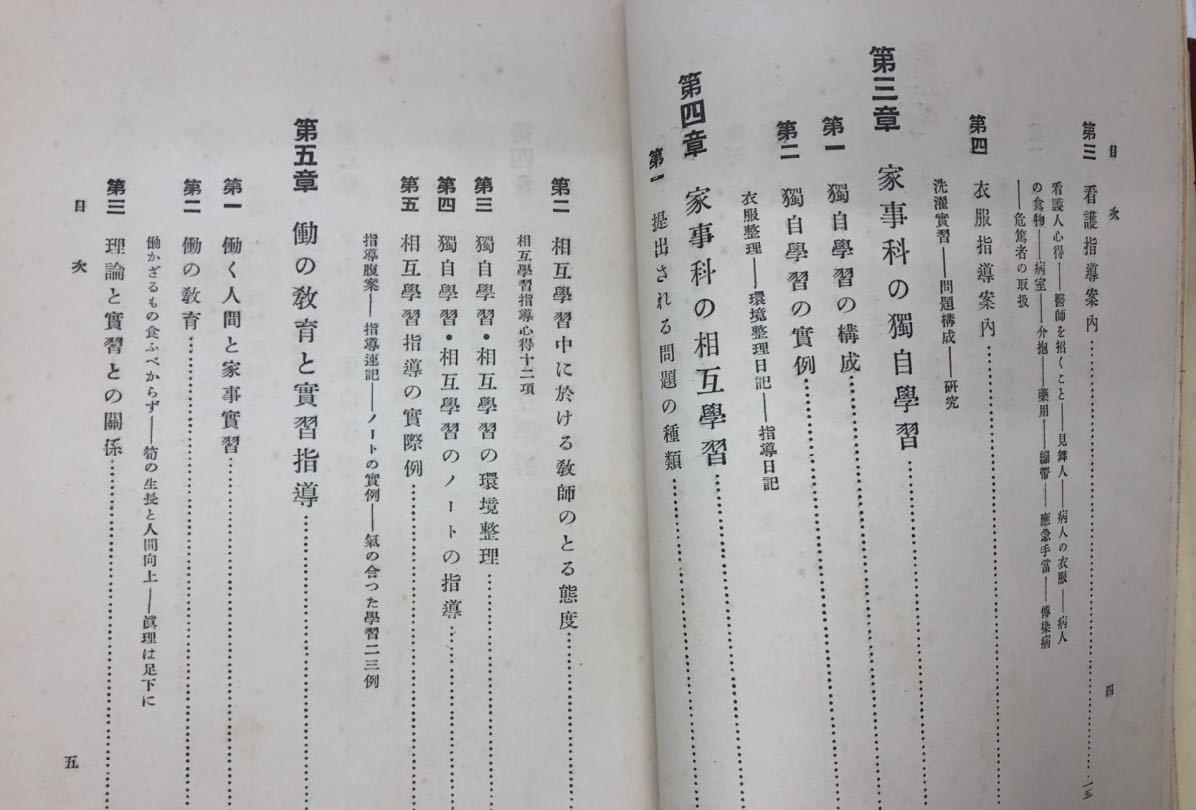 目次
四
第三 看護指導案內……一五
看護人心得――醫師を招くこと――見舞人――病人の衣服――病人
の食物――病室――介抱――藥用――繃帶――應急手當――傳染病
――危篤者の取扱
第四 衣服指導案內……
洗濯實習――問題構成――硏究
第三章 家事科の獨自學習……
第一 獨自學習の構成……
第二 獨自學習の實例……
衣服整理――環境整理日記――指導日記
第四章 家事科の相互學習……
第一 提出される問題の種類……
第二 相互學習中に於ける敎師のとる態度……
相互學習指導心得十二項
第三 獨自學習・相互學習の環境整理……
第四 獨自學習・相互學習のノートの指導……
第五 相互學習指導の實際例……
指導腹案――指導速記――ノートの實例――氣の合つた學習二三例
第五章 働の敎育と實習指導……
第一 働く人間と家事實習……
第二 働の敎育……
働かざるもの食ふべからず――筍の生長と人間向上――眞理は足下に
第三 理論と實習との關係……
目次
五